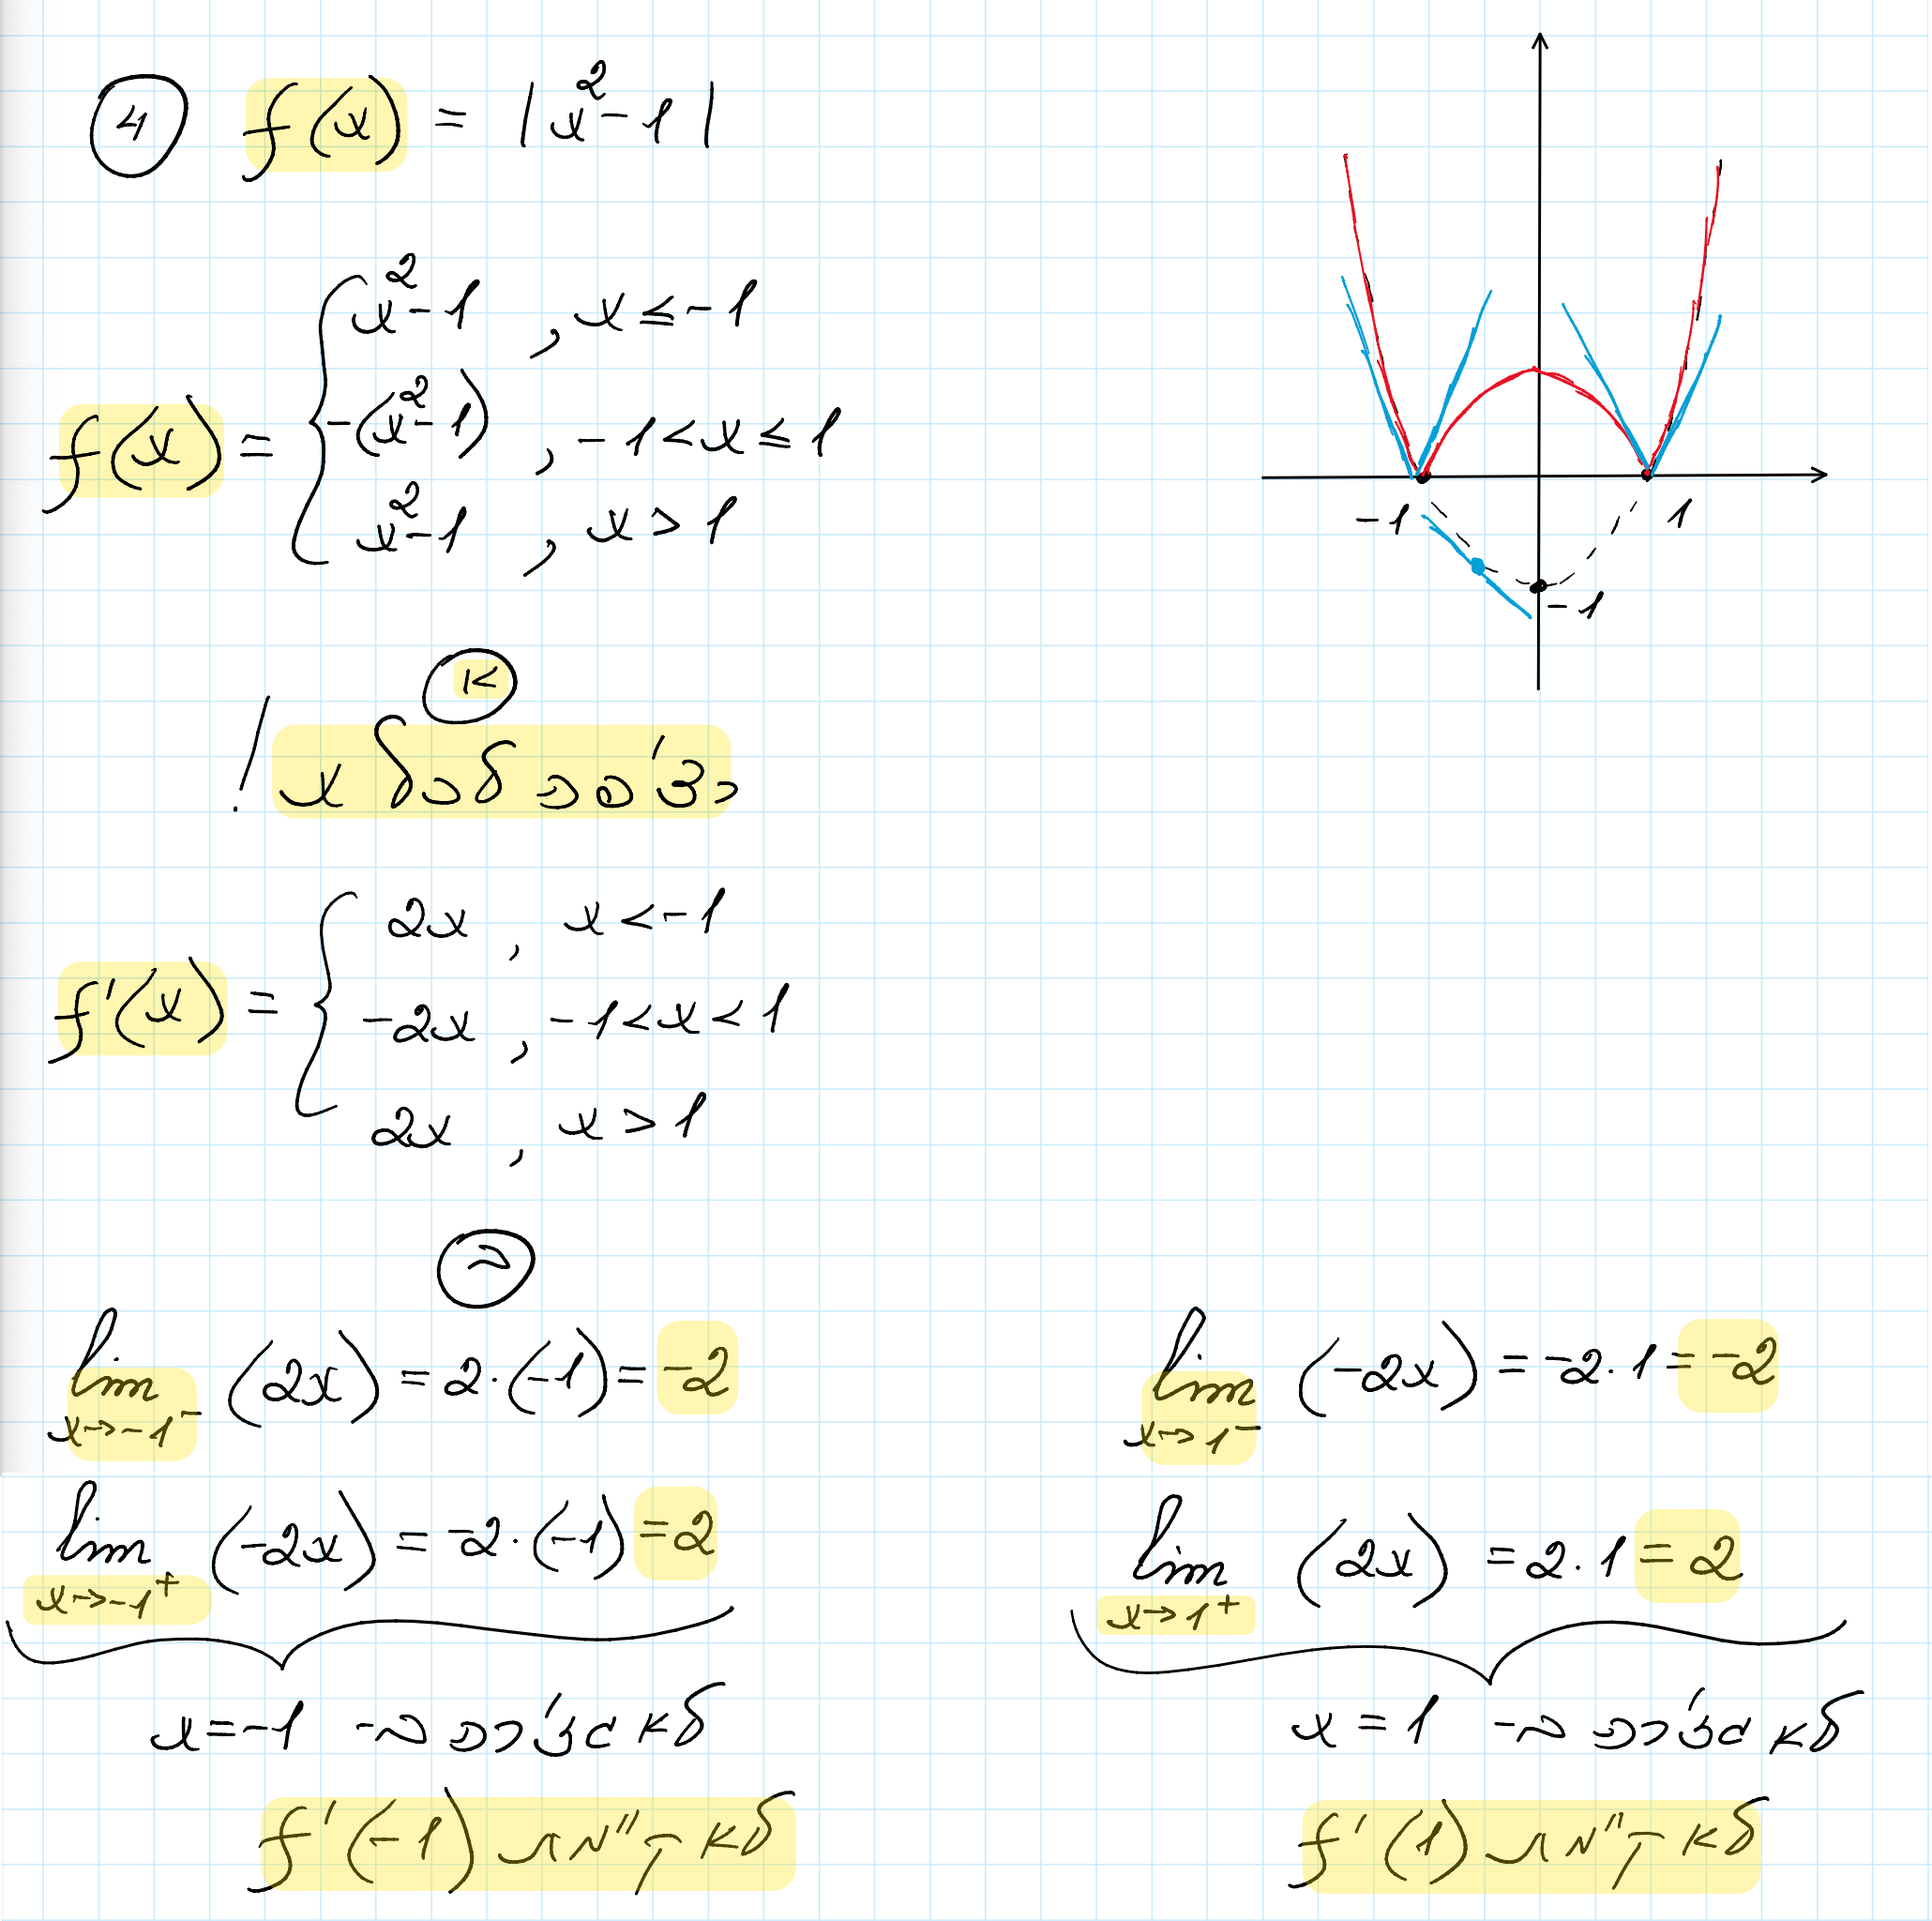 ④ f(x) = |x²-1|
f(x) = { x²-1 , x ≤ -1
-(x²-1) , -1 < x ≤ 1
x²-1 , x > 1
-1
1
-1
א
רציפה לכל x !
f'(x) = { 2x , x < -1
-2x , -1 < x < 1
2x , x > 1
ב
lim x→-1⁻ (2x) = 2·(-1) = -2
lim x→-1⁺ (-2x) = -2·(-1) = 2
לא גזירה ב- x=-1
לא קיימת f'(-1)
lim x→1⁻ (-2x) = -2·1 = -2
lim x→1⁺ (2x) = 2·1 = 2
לא גזירה ב- x=1
לא קיימת f'(1)